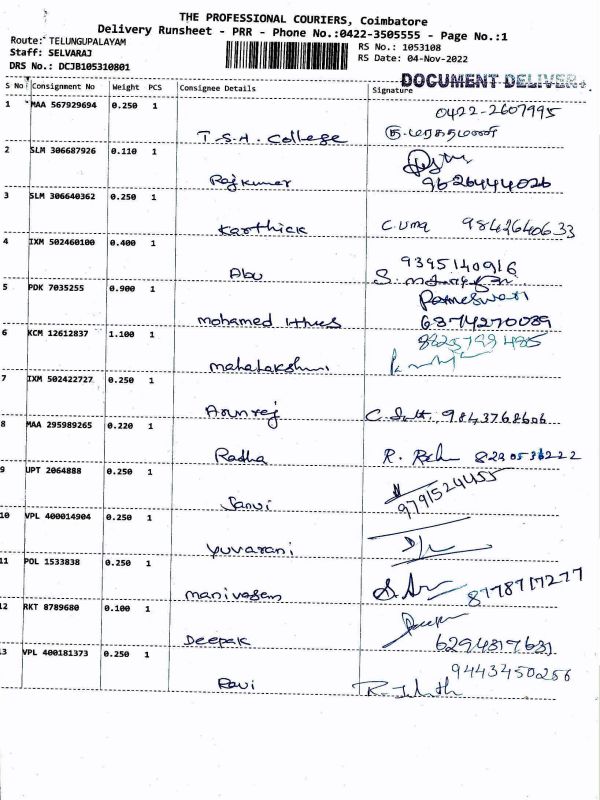 THE PROFESSIONAL COURIERS, Coimbatore
Delivery Runsheet - PRR - Phone No.:0422-3505555 - Page No.:1
Route: TELUNGUPALAYAM
RS No.: 1053108
Staff: SELVARAJ
RS Date: 04-Nov-2022
DRS No.: DCJB105310801
DOCUMENT DELIVER
S No Consignment No Weight PCS Consignee Details Signature
1 MAA 567929694 0.250 1
0422-2607995
T.S.A. College
2 SLM 306687926 0.110 1
Rajkumar 9626444026
3 SLM 306640362 0.250 1
Karthick C.uma 9842640633
4 IXM 502460100 0.400 1
9395140916
Abu
5 PDK 7035255 0.900 1
Parmeswari
Mohamed 6374270039
6 KCM 12612837 1.100 1
Mahalakshmi
7 IXM 502422727 0.250 1
Arunraj 9843768606
8 MAA 295989265 0.220 1
Radha R.
9 UPT 2064888 0.250 1
9791524455
Sanvi
10 VPL 400014904 0.250 1
Yuvarani
11 POL 1533838 0.250 1
Manivasam 8778717277
12 RKT 8789680 0.100 1
Deepak 6294317631
13 VPL 400181373 0.250 1
9443450256
Ravi